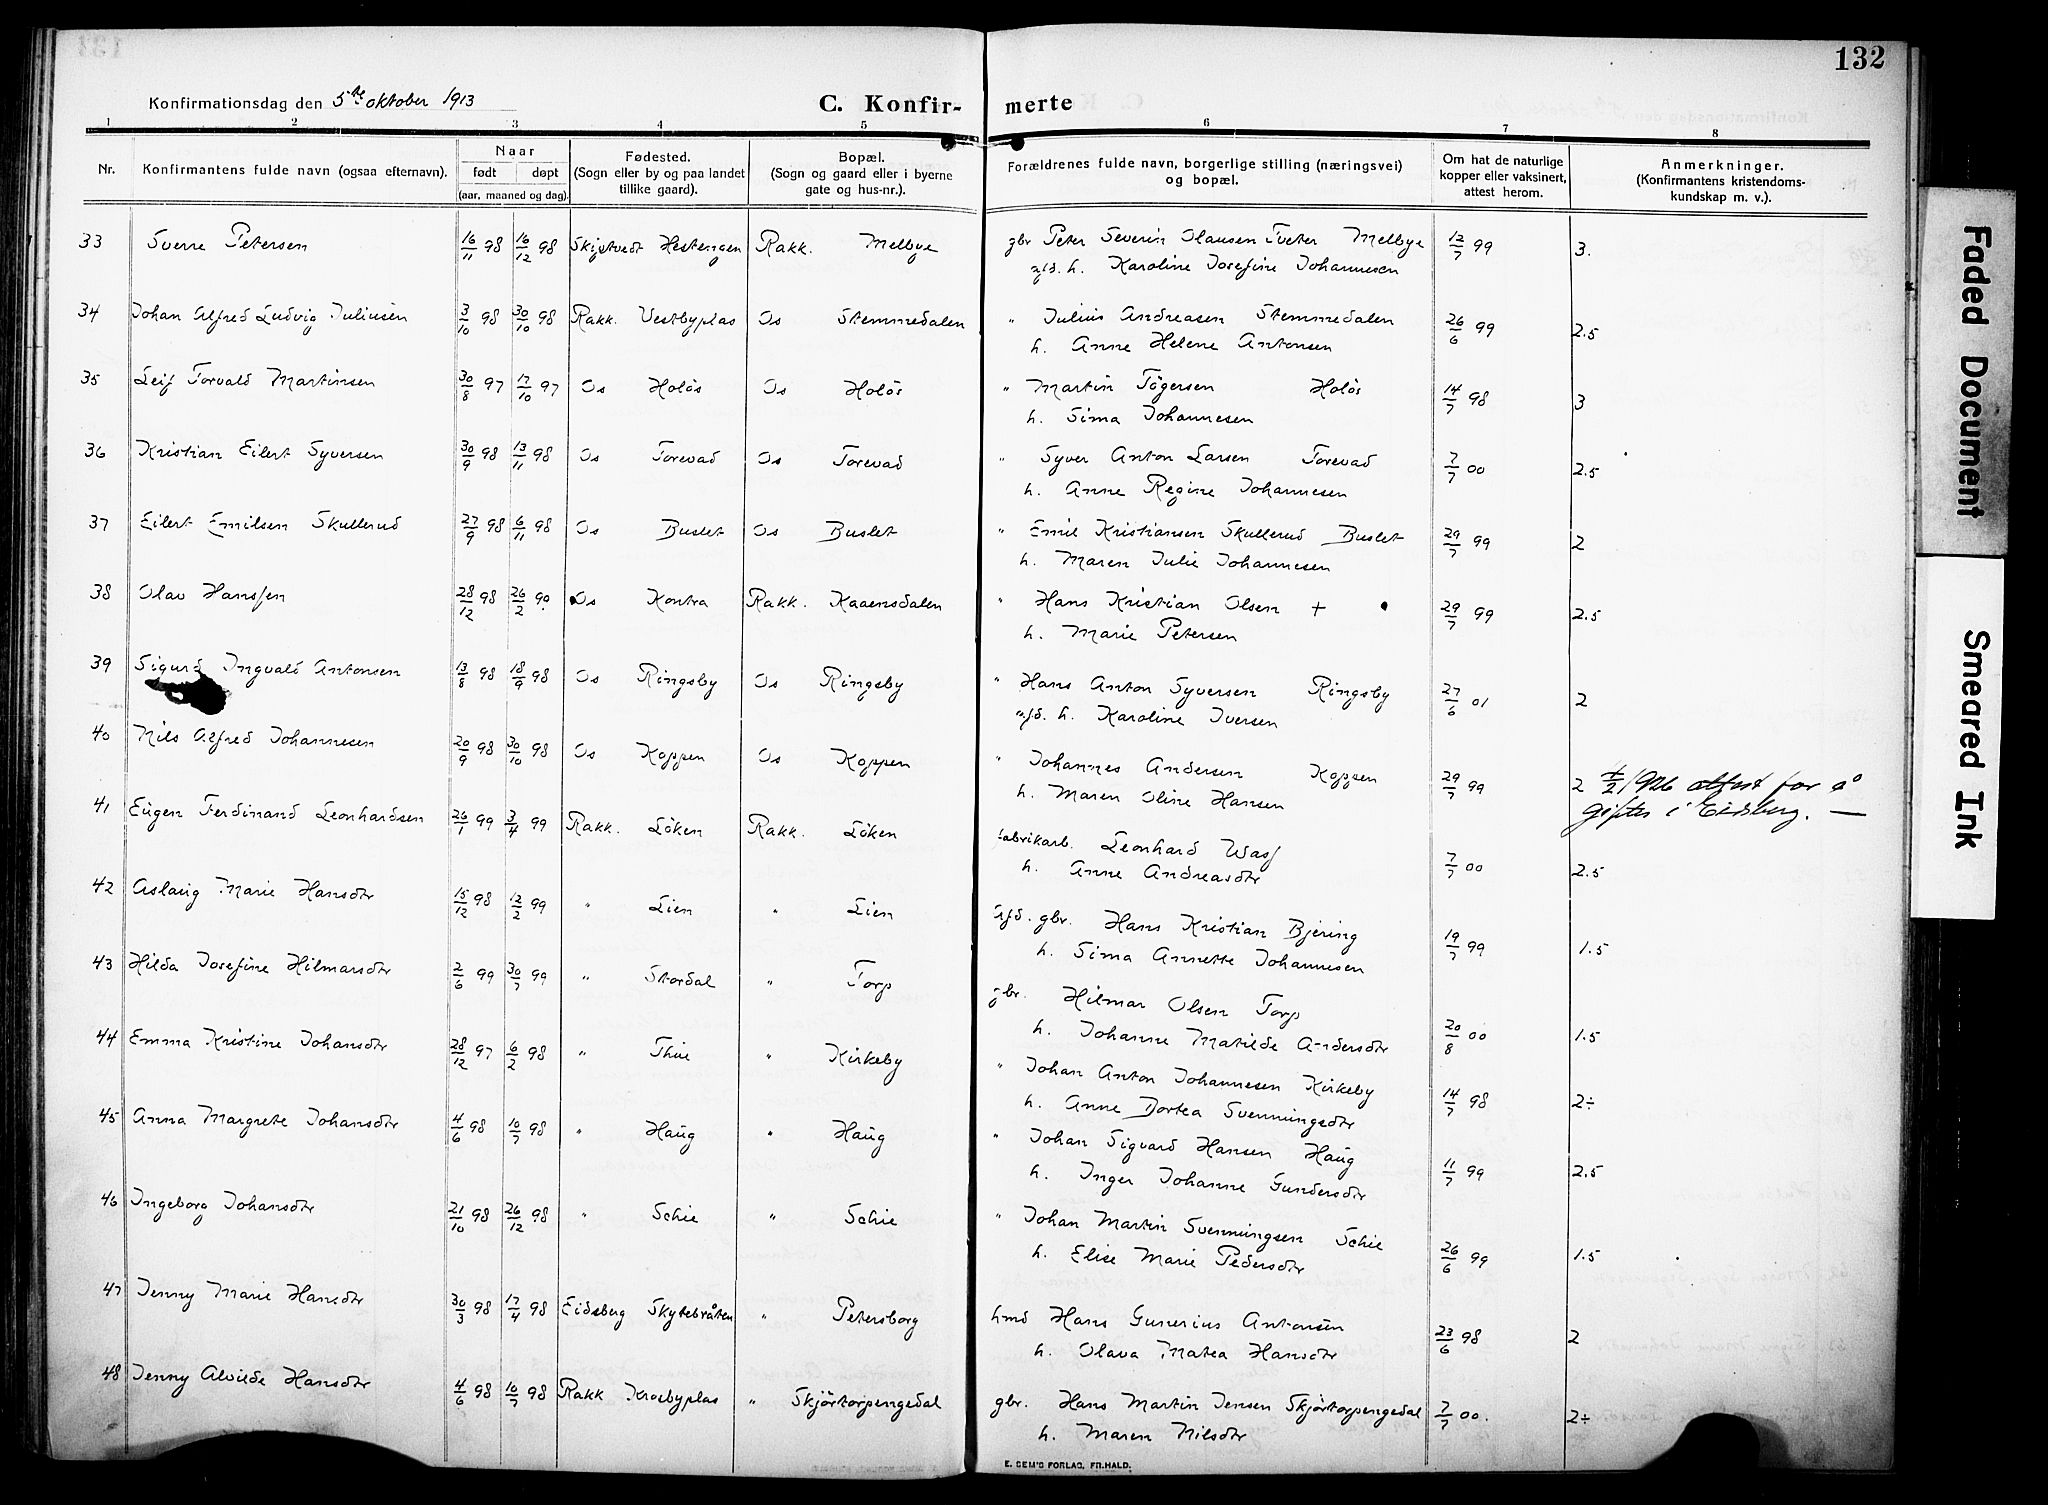 132
Konfirmationsdag den 5te oktober 1913
C. Konfir- merte
1 2 3 4 5 6 7 8
Nr. Konfirmantens fulde navn (ogsaa efternavn). Naar født døpt (aar, maaned og dag). Fødested. (Sogn eller by og paa landet tillike gaard). Bopæl. (Sogn og gaard eller i byerne gate og hus-nr.). Forældrenes fulde navn, borgerlige stilling (næringsvei) og bopæl. Om hat de naturlige kopper eller vaksinert, attest herom. Anmerkninger. (Konfirmantens kristendoms- kundskap m. v.).
33 Sverre Petersen 16/11 98 16/12 98 Skiptvedt Hestengen Rakk. Melbye gbr Peter Severin Olausen Tveter Melbye 12/7 99 3.
h. Karoline Josefine Johannesen
34 Johan Alfred Ludvig Juliusen 3/10 98 30/10 98 Rakk. Vestbyplas Os Stemmedalen " Julius Andreasen Stemmedalen 26/6 99 2.5
h. Anne Helene Antonsen
35 Leif Torvald Martinsen 30/8 97 17/10 97 Os Holøs Os Holøs " Martin Tögersen Holøs 14/7 98 3
h. Sima Johannesen
36 Kristian Eilert Syversen 30/9 98 13/11 98 Os Torevad Os Torevad " Syver Anton Larsen Torevad 7/7 00 2.5
h. Anne Regine Johannesen
37 Eilert Emilsen Skullerud 27/9 98 6/11 98 Os Buslet Os Buslet " Emil Kristiansen Skullerud Buslet 29/7 99 2
h. Maren Julie Johannesen
38 Olav Hanssen 28/12 98 26/2 90. Os Kontra Rakk. Kaaensdalen " Hans Kristian Olsen + 29/7 99 2.5
h. Marie Petersen
39 Sigurd Ingvald Antonsen 13/8 98 18/9 98 Os Ringsby Os Ringsby " Hans Anton Syversen Ringsby 27/6 01 2
h. Karoline Iversen
40 Nils Alfred Johannesen 20/9 98 30/10 98 Os Koppen Os Koppen " Johannes Andersen Koppen 29/7 99 2 1/2 1926 attest for å
h. Maren Oline Hansen giftes i Eidsberg. —
41 Eugen Ferdinand Leonhardsen 26/1 99 3/4 99 Rakk. Löken Rakk. Löken fabrikarb. Leonhard Wass 7/7 00 2.5
h. Anne Andreasdtr
42 Aslaug Marie Hansdtr 15/12 98 12/2 99 " Lien " Lien gbr. Hans Kristian Bjering 19/7 99 1.5
h. Sima Annette Johannesen
43 Hilda Josefine Hilmarsdtr 2/6 99 30/7 99 " Stordal " Torp gbr. Hilmar Olsen Torp 20/8 00 1.5
h. Johanne Matilde Andersdtr
44 Emma Kristine Johansdtr 28/12 97 6/2 98 " Thie " Kirkeby " Johan Anton Johannesen Kirkeby 14/7 98 2÷
h. Anne Dortea Svenningsdtr
45 Anna Margrete Johansdtr 4/6 98 10/7 98 " Haug " Haug " Johan Sigvard Hansen Haug 11/7 99 2.5
h. Inger Johanne Gundersdtr
46 Ingeborg Johansdtr 21/10 98 26/12 98 " Schie " Schie " Johan Martin Svenningsen Schie 26/6 99 1.5
h. Elise Marie Pedersdtr
47 Jenny Marie Hansdtr 30/3 98 17/4 98 Eidsberg Skytebråten " Petersborg hmd Hans Gunerius Antonsen 23/6 98 2
h. Olava Matea Hansdtr
48 Jenny Alvilde Hansdtr 4/6 98 10/7 98 Rakk Krosbyplas " Skjörtorpengedal gbr. Hans Martin Jensen Skjörtorpengedal 7/7 00. 2÷
h. Maren Nilsdtr
E. SEM'S FORLAG, FR.HALD.
Faded Document
Smeared Ink